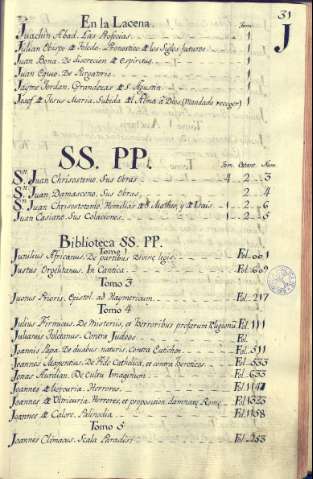 31
J
En la Lacena
Tom.
Juachin Abad. Las Profecias. 1
Julian Obispo de Toledo. Pronostico de los siglos futuros 1
Juan Bona. De discrecion de espiritus. 1
Juan Equio. De Purgatorio. 1
Jayme Jordan. Grandezas de S. Agustin 1
Josef de Jesus Maria. Subida del Alma à Dios (Mandado recoger) 1
SS. PP.
Tom. Octavo. Núm.
Sn. Juan Chrisostomo. Sus Obras 4 2 3
Sn. Juan Damasceno. Sus Obras 2 4
Sn. Juan Chrisostomo. Homilias de S. Matheo, y de Isais 1 2 6
Juan Casiano. Sus Colaciones 1 2 5
Biblioteca SS. PP.
Tomo 1
Junilius Africanus. De partibus Divine legis Fol. 661
Justus Orgelitanus. In Cantica Fol.
Tomo 3
Juenis Prioris. Epistol. ad Raymericum Fol. 217
Tomo 4
Julius Firmicus. De Misteriis, et Herroribus profanum Religionū Fol. 111
Julianus Toletanus. Contra Judeos Fol.
Joannis Papa. De duabus naturis, contra Eutichen Fol. 511
Joannes Maxentius. De Fide Catholica, et contra hereticos Fol. 533
Jonas Aurelian. De Cultu Imaginum Fol. 633
Joannes de Herrores Fol.
Joannes de Herrores, et proposicion. damnate Rome Fol. 1323
Joannes de Calore. Palinodia Fol. 1158
Tomo 5
Joannes Climacus. Scala Paradisi Fol. 253